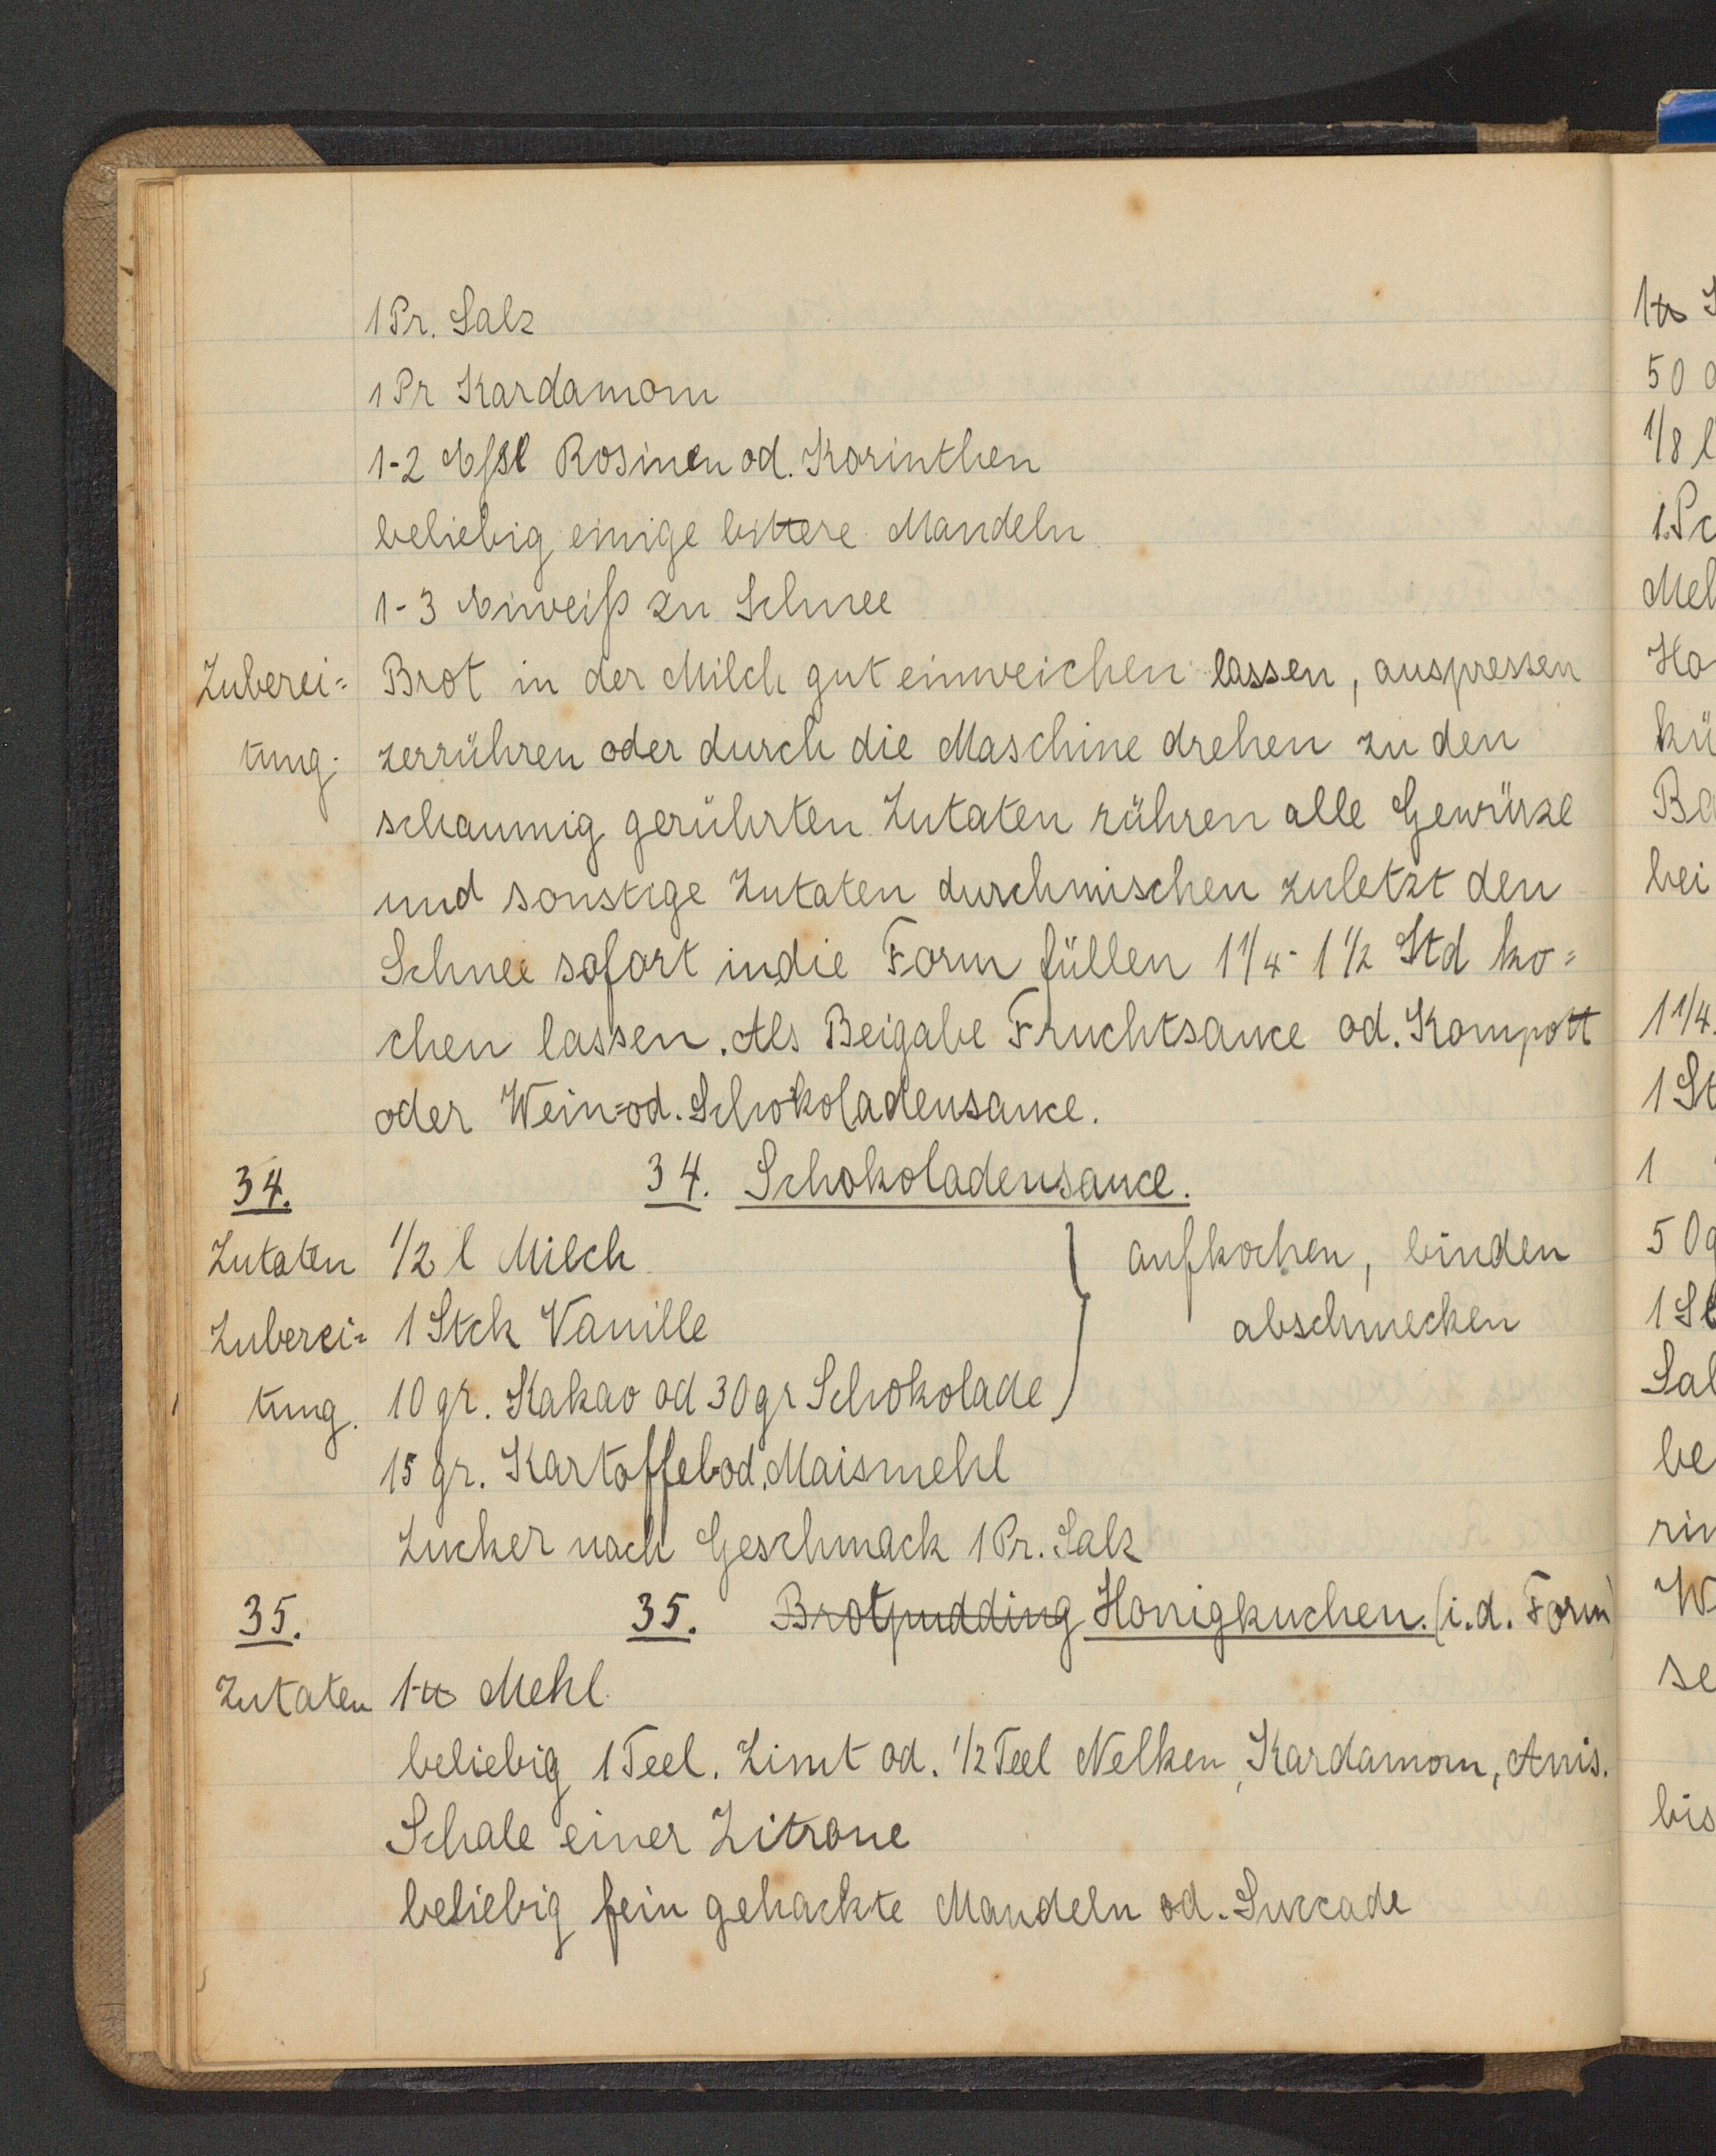 1 Pr. Salz
1 Pr Kardamom
1-2 Eßl Rosinen od. Korinthen
beliebig einige bittere Mandeln
1-3 Eiweiß zu Schnee
Zuberei= Brot in der Milch gut einweichen lassen, auspressen
tung. zerrühren oder durch die Maschine drehen zu den
schaumig gerührten Zutaten rühren alle Gewürze
und sonstige Zutaten durchmischen zuletzt den
Schnee sofort in die Form füllen 1 1/4 - 1 1/2 Std ko=
chen lassen. Als Beigabe Fruchtsauce od. Kompott
oder Wein=od. Schokoladensauce.
34. 34. Schokoladensauce.
Zutaten 1/2 l Milch } aufkochen, binden
Zuberei= 1 Stck Vanille abschmecken
tung. 10 gr. Kakao od 30 gr Schokolade
15 gr. Kartoffel-od. Maismehl
Zucker nach Geschmack 1 Pr. Salz
35. 35. Brotpudding Honigkuchen. (i. d. Form)
Zutaten 1 ℔ Mehl
beliebig 1 Teel. Zimt od. 1/2 Teel Nelken, Kardamom, Anis.
Schale einer Zitrone
beliebig fein gehackte Mandeln od. Succade
1 ℔
50
1/8 l
Ho
kü
bei
1 1/4
1 St
1
50g
be
W
se
bis